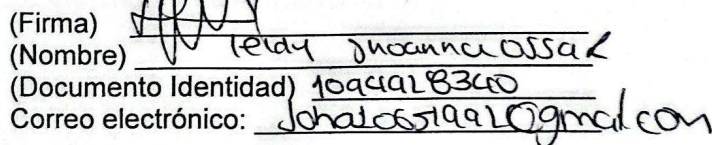 (Firma)
(Nombre) leidy Jhoanna Ossa R
(Documento Identidad) 1094928340
Correo electrónico: Joha20651992@gmail.com